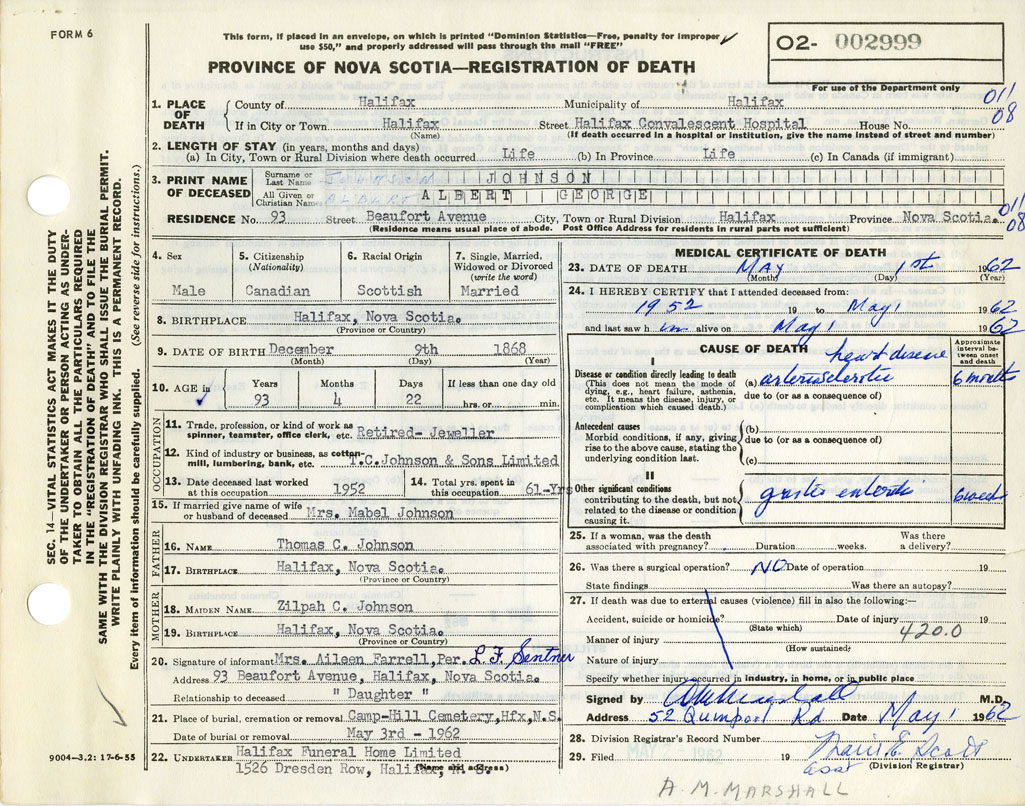 FORM 6
This form, if placed in an envelope, on which is printed "Dominion Statistics—Free, penalty for improper
use $50," and properly addressed will pass through the mail "FREE"
PROVINCE OF NOVA SCOTIA—REGISTRATION OF DEATH
02- 002999
For use of the Department only
011
08
1. PLACE OF DEATH
County of Halifax Municipality of Halifax
If in City or Town Halifax Street Halifax Convalescent Hospital House No.
(Name) (If death occurred in a hospital or institution, give the name instead of street and number)
2. LENGTH OF STAY (in years, months and days)
(a) In City, Town or Rural Division where death occurred Life (b) In Province Life (c) In Canada (if immigrant)
3. PRINT NAME OF DECEASED
Surname or Last Name JOHNSON JOHNSON
All Given or Christian Names ALBERT ALBERT GEORGE
RESIDENCE No. 93 Street Beaufort Avenue City, Town or Rural Division Halifax Province Nova Scotia.
(Residence means usual place of abode. Post Office Address for residents in rural parts not sufficient)
011
08
4. Sex
Male
5. Citizenship
(Nationality)
Canadian
6. Racial Origin
Scottish
7. Single, Married,
Widowed or Divorced
(write the word)
Married
8. BIRTHPLACE Halifax, Nova Scotia.
(Province or Country)
9. DATE OF BIRTH December 9th 1868
(Month) (Day) (Year)
10. AGE in
Years Months Days If less than one day old
93 4 22 hrs. or min.
OCCUPATION
11. Trade, profession, or kind of work as
spinner, teamster, office clerk, etc. Retired- Jeweller
12. Kind of industry or business, as cotton-
mill, lumbering, bank, etc. T.C.Johnson & Sons Limited
13. Date deceased last worked
at this occupation 1952
14. Total yrs. spent in
this occupation 61-Yrs
15. If married give name of wife
or husband of deceased Mrs. Mabel Johnson
FATHER
16. NAME Thomas C. Johnson
17. BIRTHPLACE Halifax, Nova Scotia.
(Province or Country)
MOTHER
18. MAIDEN NAME Zilpah C. Johnson
19. BIRTHPLACE Halifax, Nova Scotia.
(Province or Country)
20. Signature of informant Mrs. Aileen Farrell, Per. L.F. Sentner
Address 93 Beaufort Avenue, Halifax, Nova Scotia.
Relationship to deceased " Daughter "
21. Place of burial, cremation or removal Camp-Hill Cemetery, Hfx, N.S.
Date of burial or removal May 3rd - 1962
22. UNDERTAKER Halifax Funeral Home Limited
1526 Dresden Row, Halifax, N. S.
(Name and address)
MEDICAL CERTIFICATE OF DEATH
23. DATE OF DEATH MAY 1st 1962
(Month) (Day) (Year)
24. I HEREBY CERTIFY that I attended deceased from:
1952 19 to May 1 1962
and last saw him alive on May 1 1962
CAUSE OF DEATH
Approximate interval between onset and death
I
Disease or condition directly leading to death
(This does not mean the mode of
dying, e.g., heart failure, asthenia,
etc. It means the disease, injury, or
complication which caused death.)
heart disease
(a) arteriosclerotic 6 months
due to (or as a consequence of)
Antecedent causes
Morbid conditions, if any, giving
rise to the above cause, stating the
underlying condition last.
(b)
due to (or as a consequence of)
(c)
II
Other significant conditions
contributing to the death, but not
related to the disease or condition
causing it.
6 weeks
25. If a woman, was the death
associated with pregnancy? Duration weeks. Was there
a delivery?
26. Was there a surgical operation? NO Date of operation 19
State findings Was there an autopsy?
27. If death was due to external causes (violence) fill in also the following:—
Accident, suicide or homicide? Date of injury 19
(State which)
420.0
Manner of injury
(How sustained)
Nature of injury
Specify whether injury occurred in industry, in home, or in public place
Signed by AM Marshall M.D.
Address 52 Quinpool Rd Date May 1 1962
28. Division Registrar's Record Number
MAY 7 1962
29. Filed 19 Marie E. Scott
asst (Division Registrar)
A. M. MARSHALL
SEC. 14—VITAL STATISTICS ACT MAKES IT THE DUTY
OF THE UNDERTAKER OR PERSON ACTING AS UNDER-
TAKER TO OBTAIN ALL THE PARTICULARS REQUIRED
IN THE "REGISTRATION OF DEATH" AND TO FILE THE
SAME WITH THE DIVISION REGISTRAR WHO SHALL ISSUE THE BURIAL PERMIT.
WRITE PLAINLY WITH UNFADING INK. THIS IS A PERMANENT RECORD.
Every item of information should be carefully supplied. (See reverse side for instructions.)
9004—3.2: 17-6-55